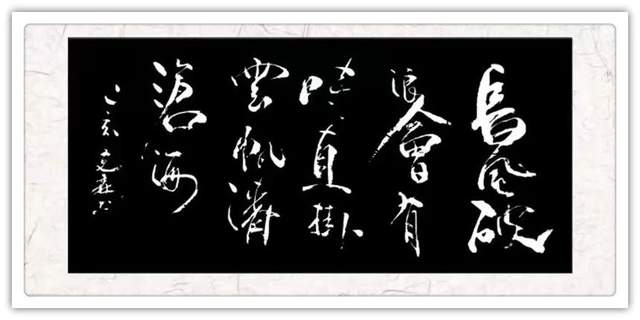 長风破
浪會有
時直掛
雲帆濟
滄海
己亥